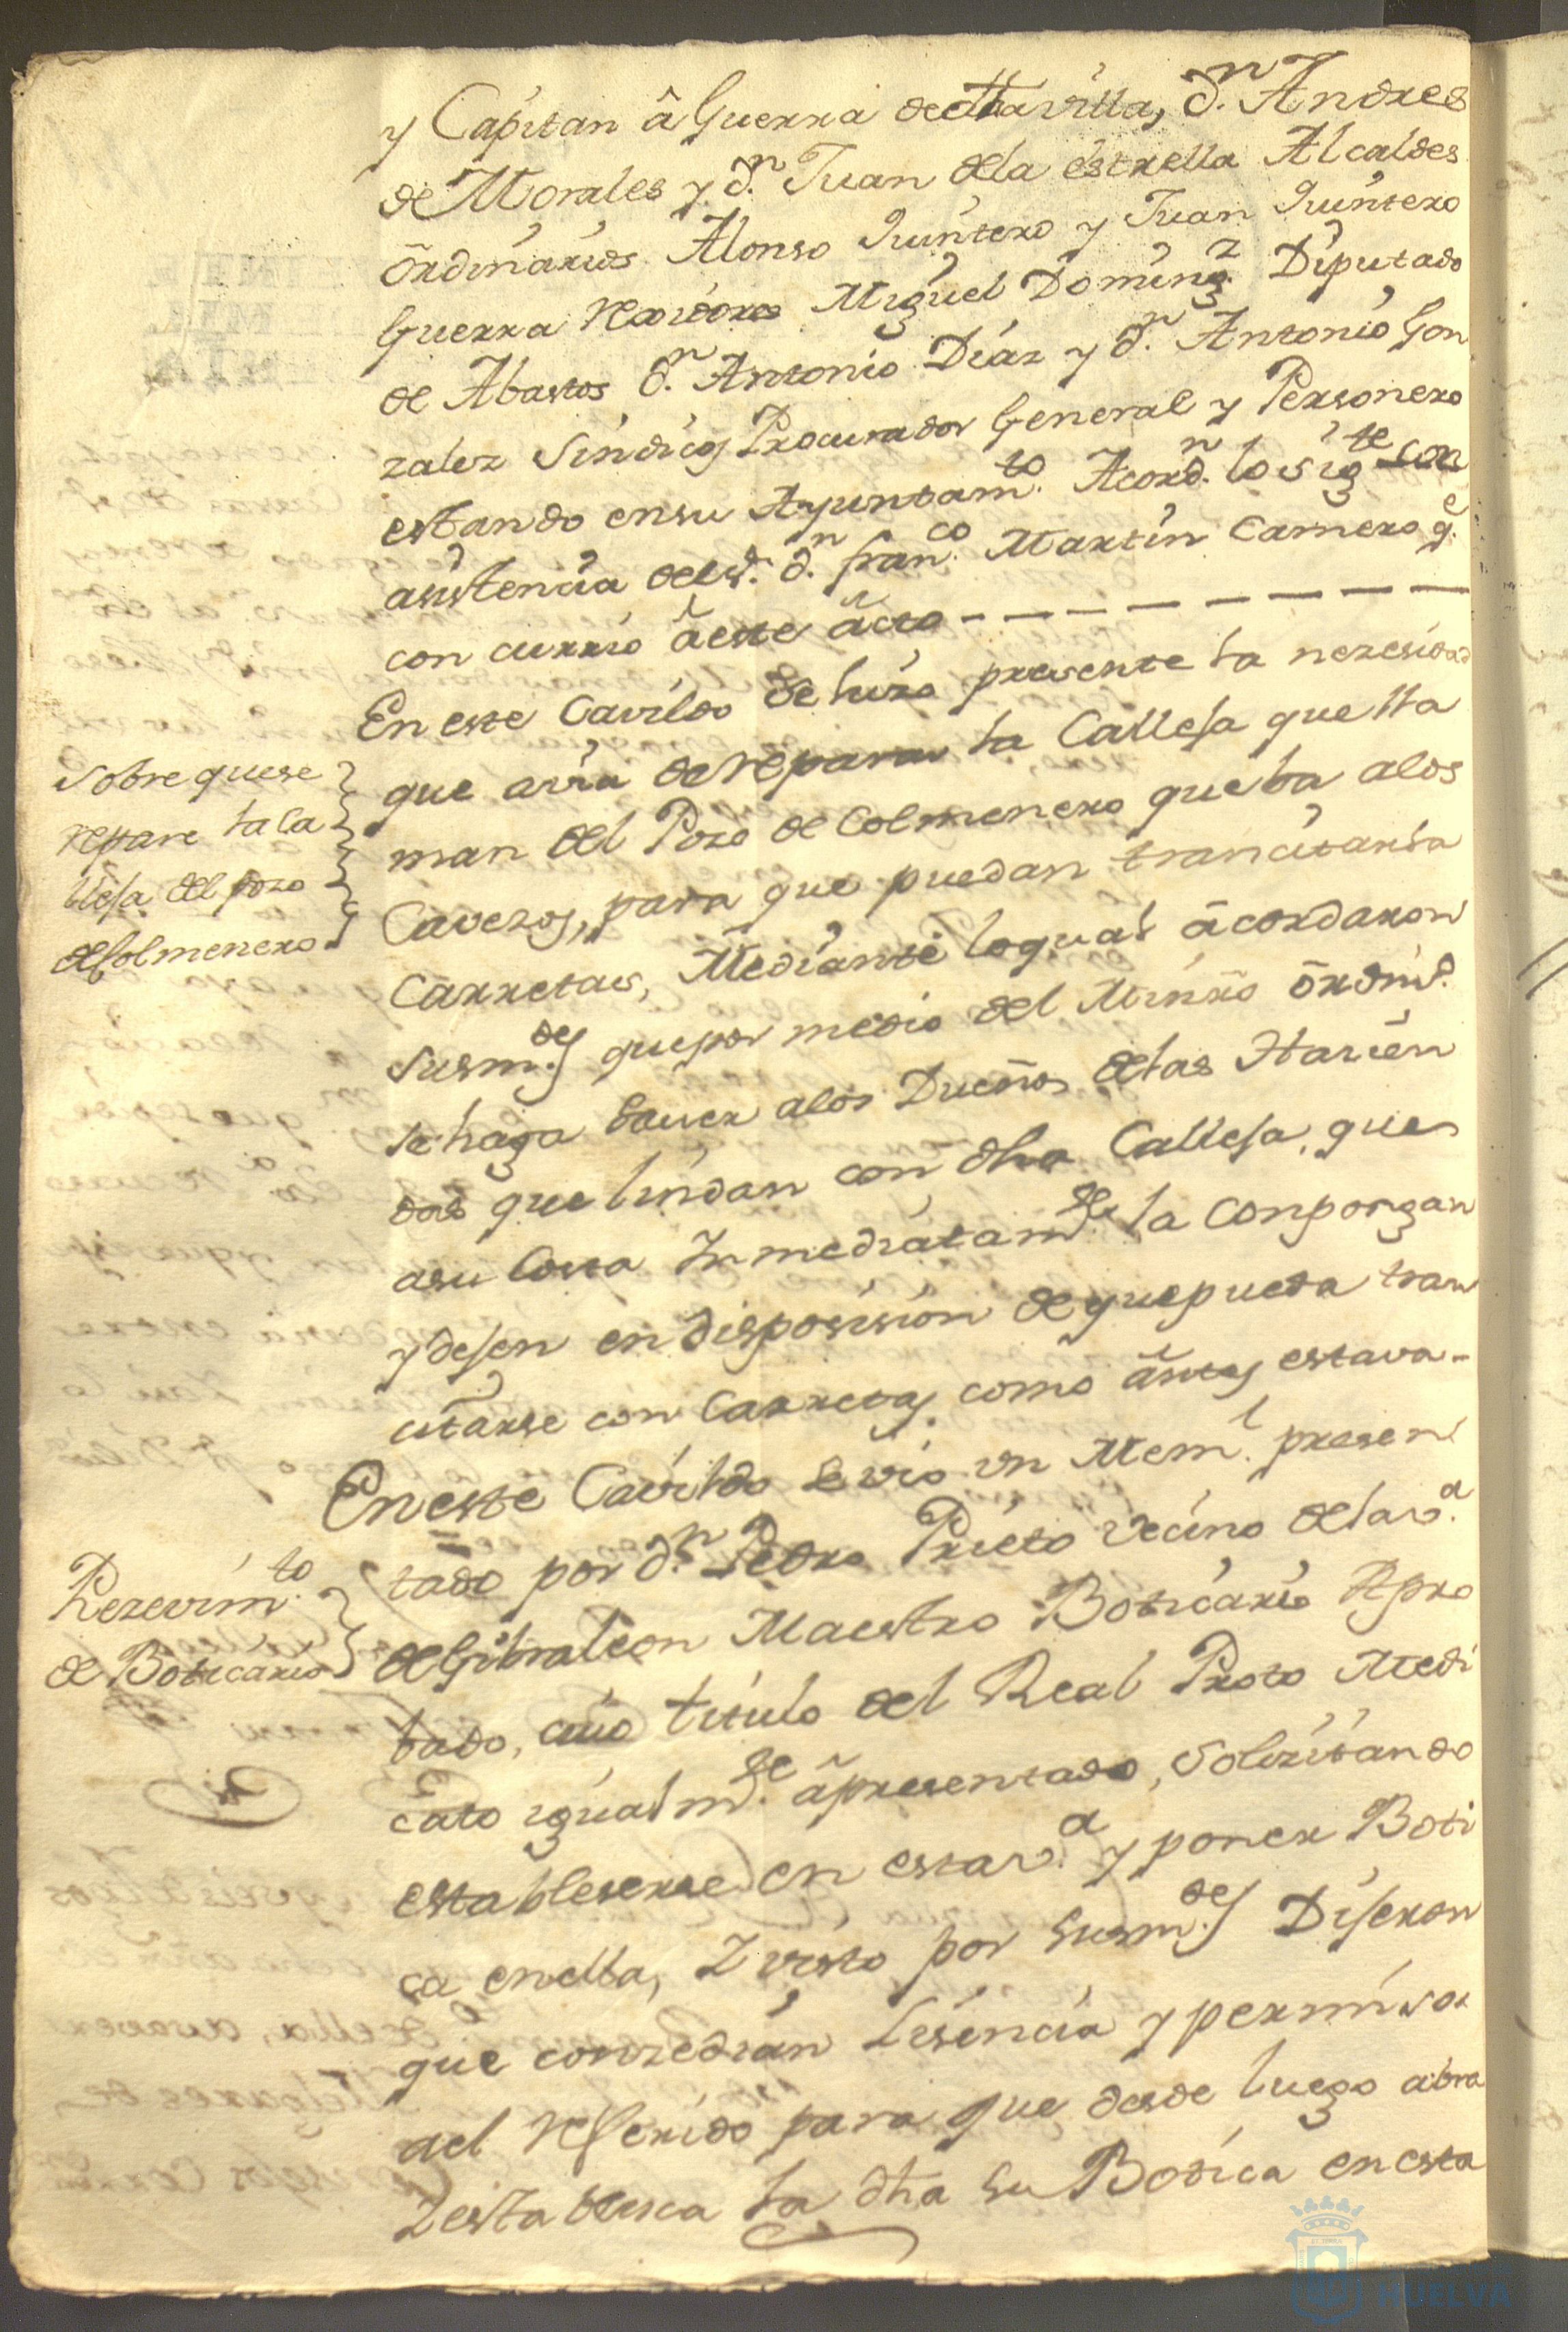 y Capitan â Guerra de esta villa, d.n Andres
de Morales y d.n Juan dela estrella Alcaldes
ôrdinarios Alonso Quintero y Juan Quintero
Guerra rexidores Miguel Doming.z Diputado
de Abastos d.n Antonio Diaz y d.n Antonio Gon
zalez Sindicos Procurador General y Personero
estando en su Ayuntam.to Acord.n lo sig.te con
asistencia del s.r d.n fran.co Martin Carnero q.e
con currio â este âcto
En este Cavildo se hizo presente la nezesidad
que avia de reparar la Calleja que lla
man del Pozo de Colmenero que ba alos
Cavezos, para que puedan trancitarla
Carretas, Mediante lo qual âcordaron
sus m.des que por medio del Minrô ôrdin.o
se haga saver alos Dueños delas Hacien
das que lindan con dha Calleja, que
a su costa Inmediatam.te la Conpongan
y dejen en disposision de que pueda tran
citarse con Carretas como ântes estava-
Sobre que se
repare la Ca
lleja del pozo
de Colmenero
En este Cavildo se vio un Mem.l presen
tado por d.n Pedro Prieto vecino de la v.a
de Gibraleon Maestro Boticario Apro
bado, cuio titulo del Real Proto Medi
cato igualm.te â presentado, Solizitando
estableserse en esta v.a y poner Boti
ca en ella, Y visto por sus m.des Dijeron
que conzedian Lisencia y permiso
al referido para que desde luego abra
Y establesca la dha su Botica en esta
Rezevim.to
de Boticario
HUELVA